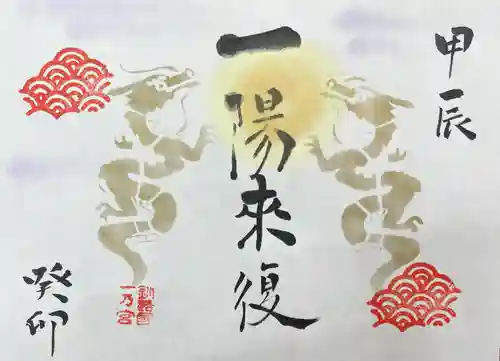 甲辰
一陽来復
一乃宮
癸卯